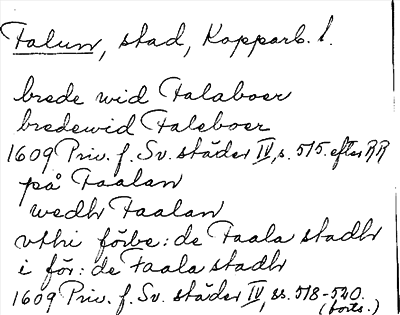 Falun, stad, Kopparb. l.
brede wid Falaboer
bredewid Faleboer
1609 Priv. f. Sv. städer IV, s. 515. efter RR
på Faalan
wedh Faalan
vthi förbe: de Faala stadh
i för: de Faala stadh
1609 Priv. f. Sv. städer IV, ss. 518-520.
(forts.)